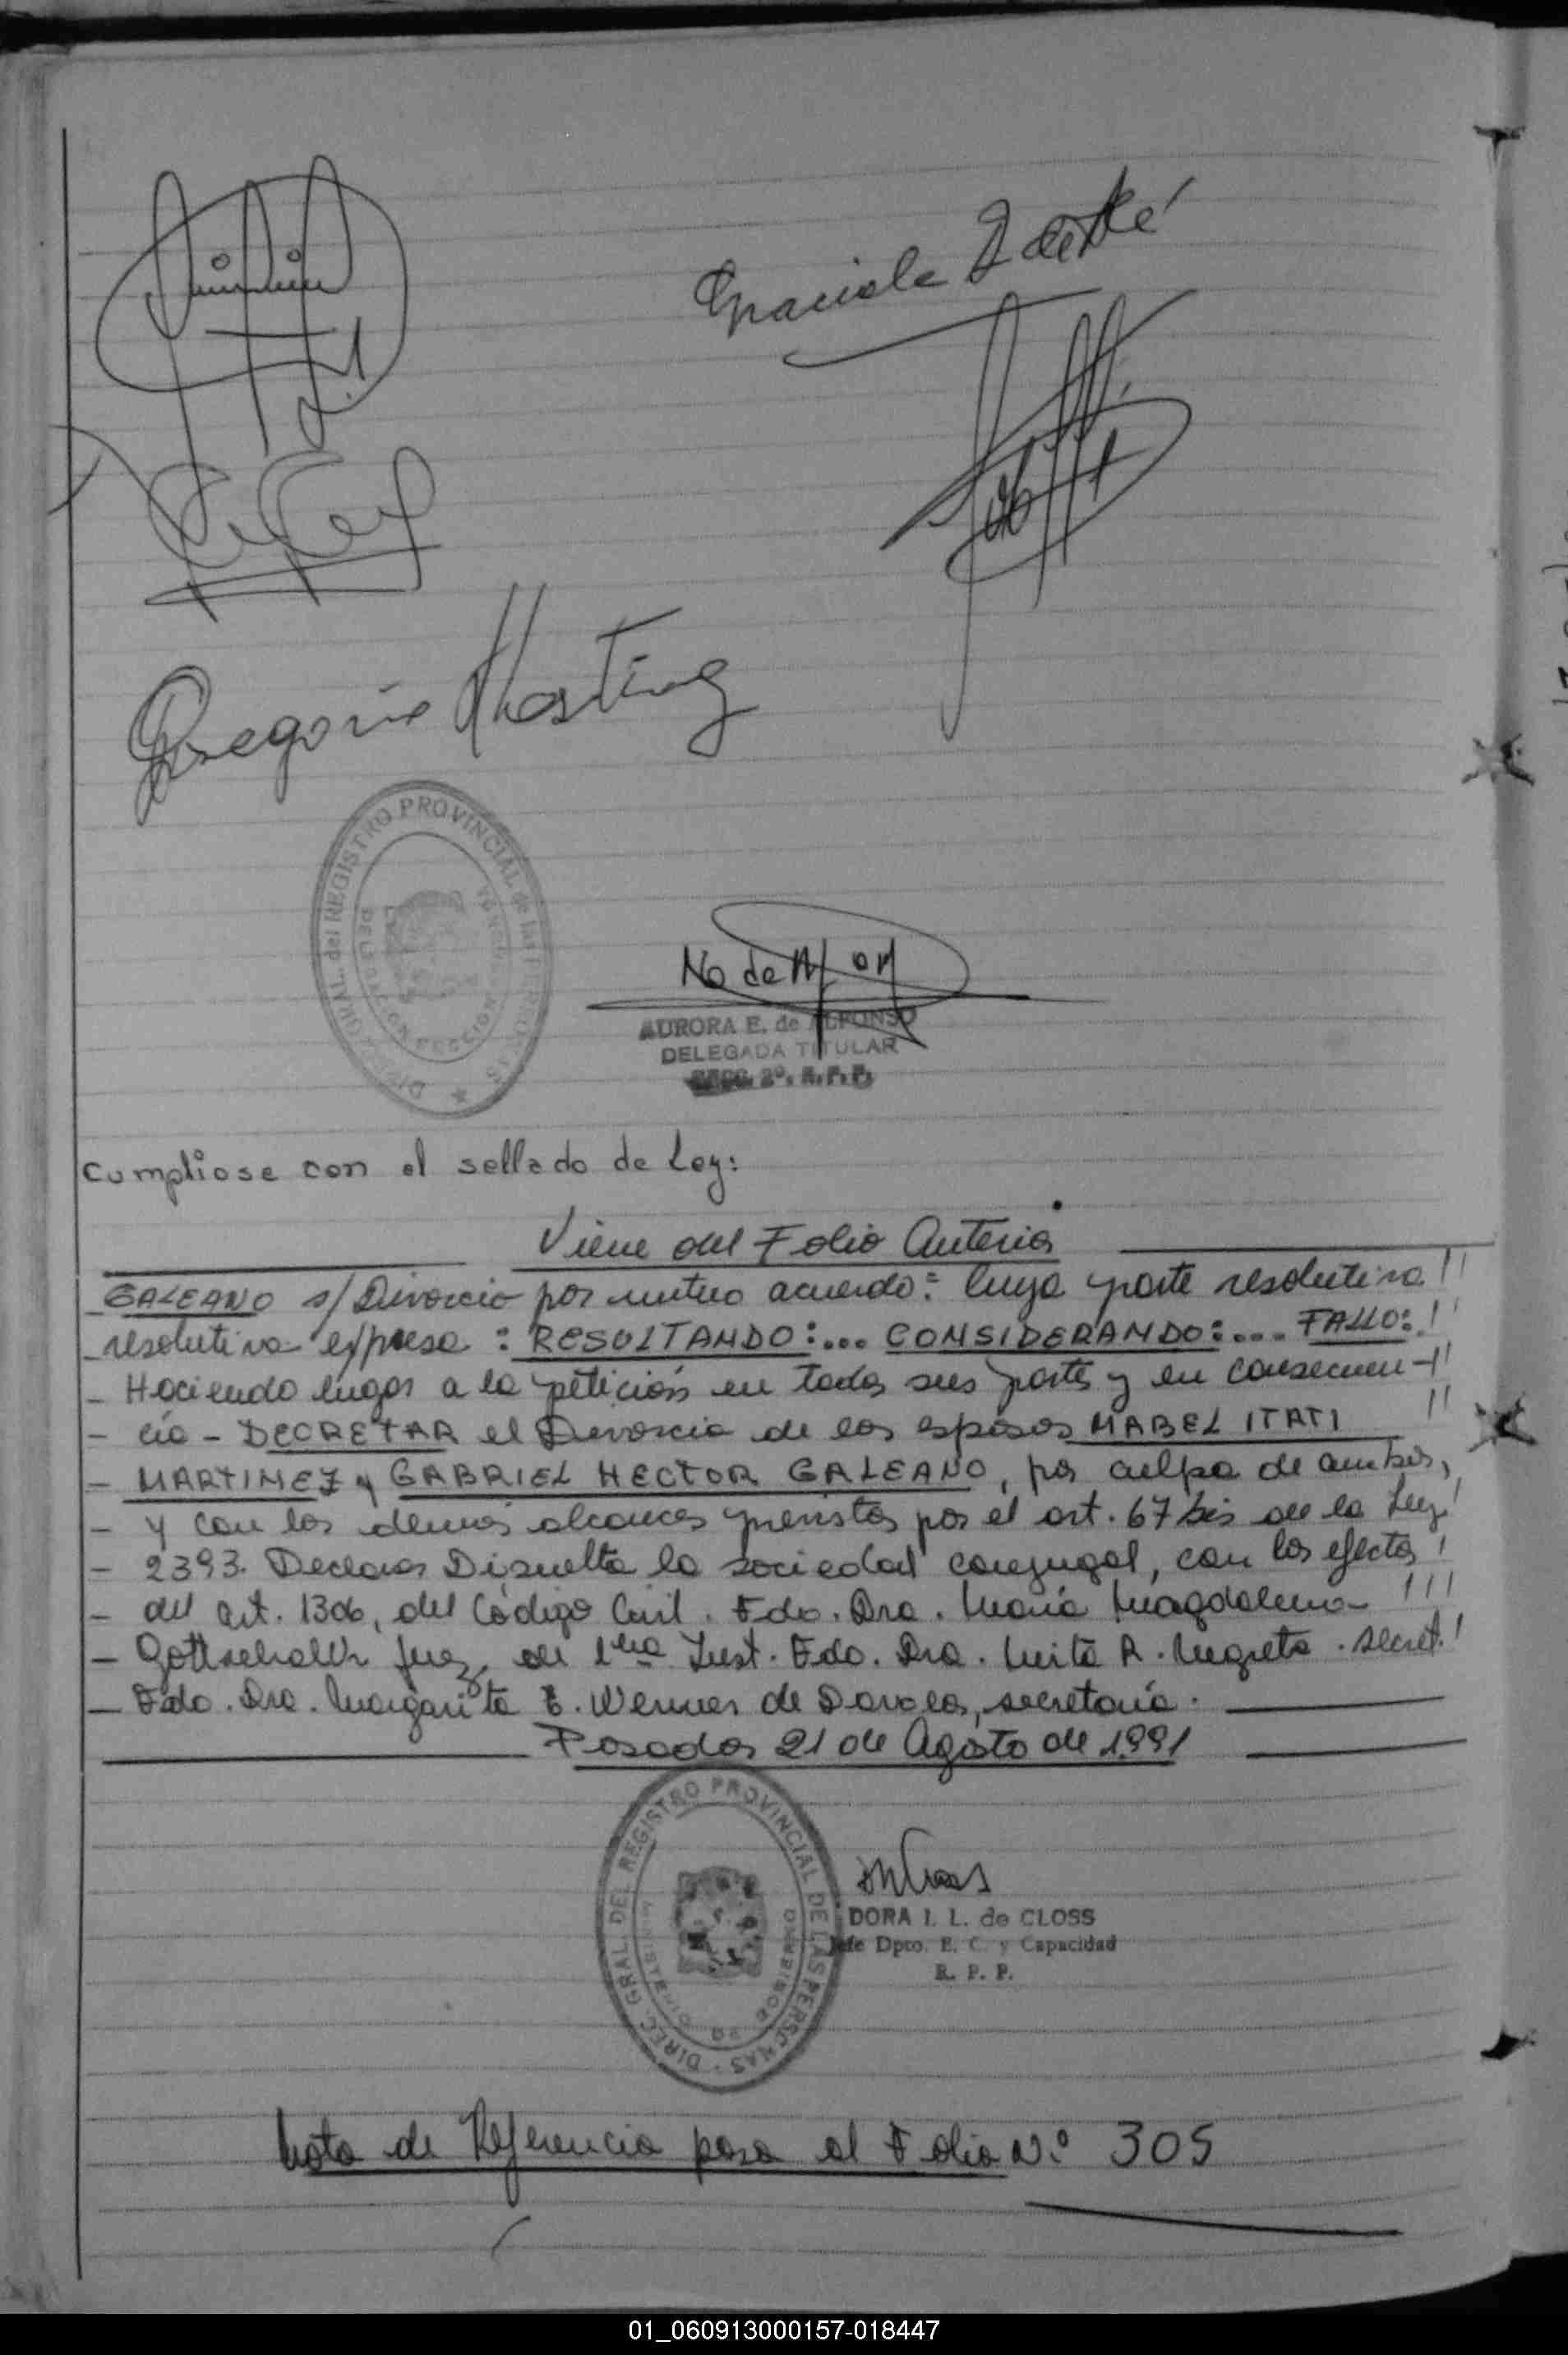 Graciela
Gregorio
DIREC. GRAL. del REGISTRO PROVINCIAL de las PERSONAS
DELEGACION SECCION
AURORA E. de ALFONSO
DELEGADA TITULAR
SECC. 2º. R.P.P.
Cumpliose con el sellado de Ley:
Viene del Folio Anterior
GALEANO s/ Divorcio por mutuo acuerdo: Cuya parte resolutiva
resolutiva expresa: RESULTANDO:... CONSIDERANDO:... FALLO:
- Haciendo lugar a la petición en todas sus partes y en consecuen-
- cia - DECRETAR el Divorcio de los esposos MABEL ITATI
- MARTINEZ y GABRIEL HECTOR GALEANO, por culpa de ambos,
- y con los demás alcances previstos por el art. 67 bis de la Ley
- 2393. Declarar Disuelta la sociedad conyugal, con los efectos
- del art. 1306, del Código Civil. Fdo. Dra. María Magdalena
- Gottschalk Juez, de 1ra Inst. Fdo. Dra. Mirta R. Negrete. secret.
- Fdo. Dra. Margarita E. Werner de secretaria.
Posadas 21 de Agosto de 1991
DIREC. GRAL. DEL REGISTRO PROVINCIAL DE LAS PERSONAS
MINISTERIO DE GOBIERNO
DORA I. L. de CLOSS
Jefe Dpto. E. C. y Capacidad
R. P. P.
Nota de Referencia pasa al Folio Nº 305
01_060913000157-018447